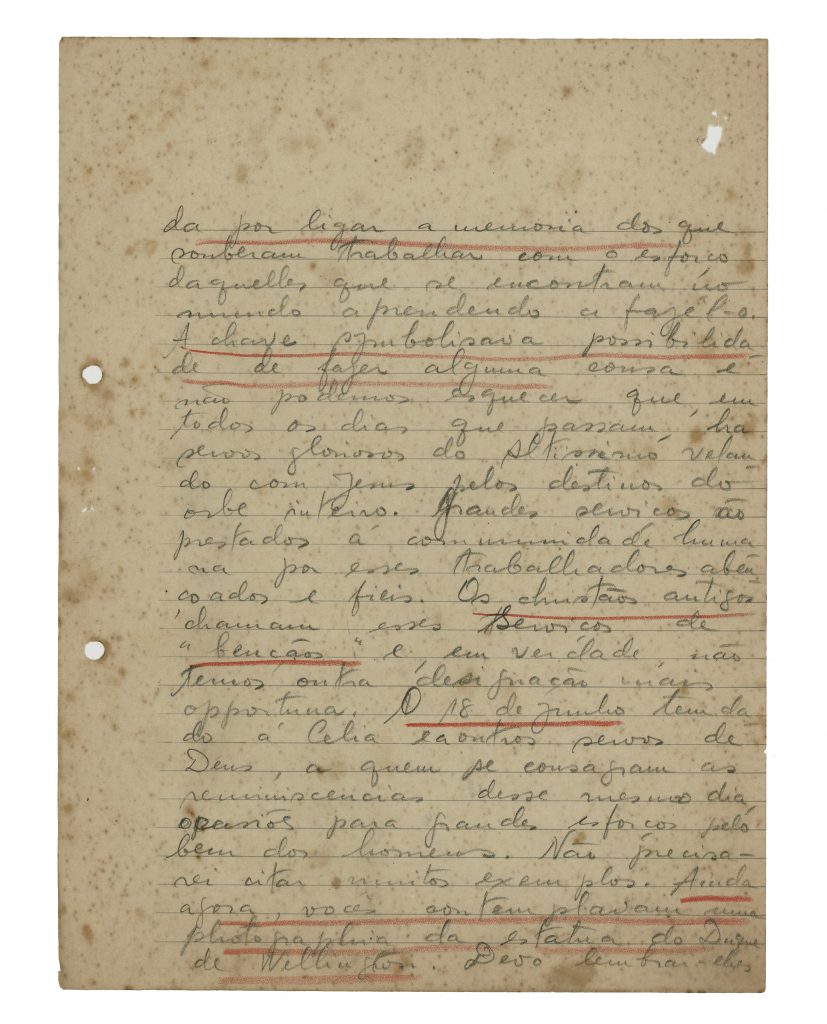 da por ligar a memoria dos que
souberam trabalhar com o esforço
daquelles que se encontram no
mundo aprendendo a fazel-o.
A chave symbolisava possibilida
de de fazer alguma cousa e
não podemos esquecer que, em
todos os dias que passam, ha
servos gloriosos do Altissimo velan
do com Jesus pelos destinos do
orbe inteiro. Grandes serviços são
prestados á communidade huma
na por esses trabalhadores aben
çoados e fieis. Os christãos antigos
chamam esses serviços de
"bençãos" e, em verdade, não
temos outra designação mais
opportuna. O 18 de Junho tem da
do á Celia e a outros servos de
Deus, a quem se consagram as
reminiscencias desse mesmo dia,
ocasiões para grandes esforços pelo
bem dos homens. Não precisa-
rei citar muitos exemplos. Ainda
agora, vocês contemplavam uma
photographia da estatua do Duque
de Wellington. Devo lembrar-lhes